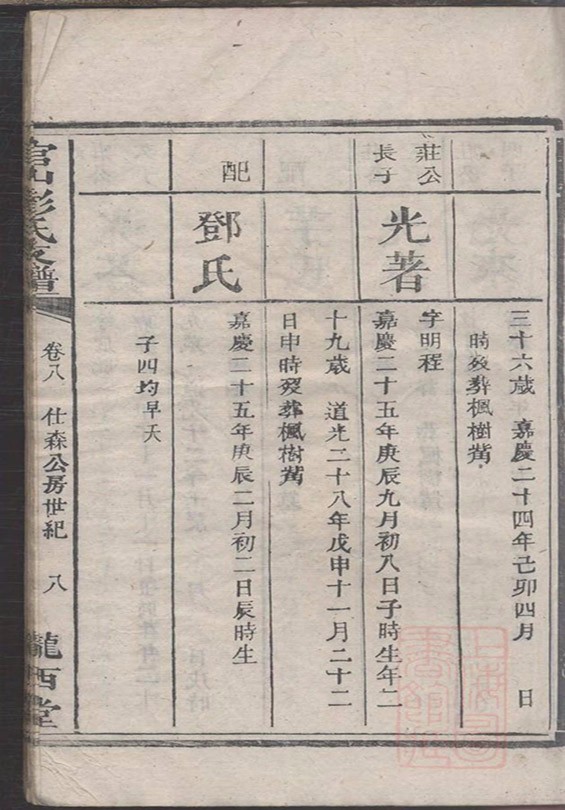 三十六歲 嘉慶二十四年己卯四月 日
時歿葬楓樹䓣
莊公
長子
光著
字明程
嘉慶二十五年庚辰九月初八日子時生年二
十九歲 道光二十八年戊申十一月二十二
日申時歿葬楓樹䓣
配
鄧氏
嘉慶二十五年庚辰二月初二日辰時生
子四均早夭
官山彭氏支譜
卷八 仕森公房世紀 八
隴西堂